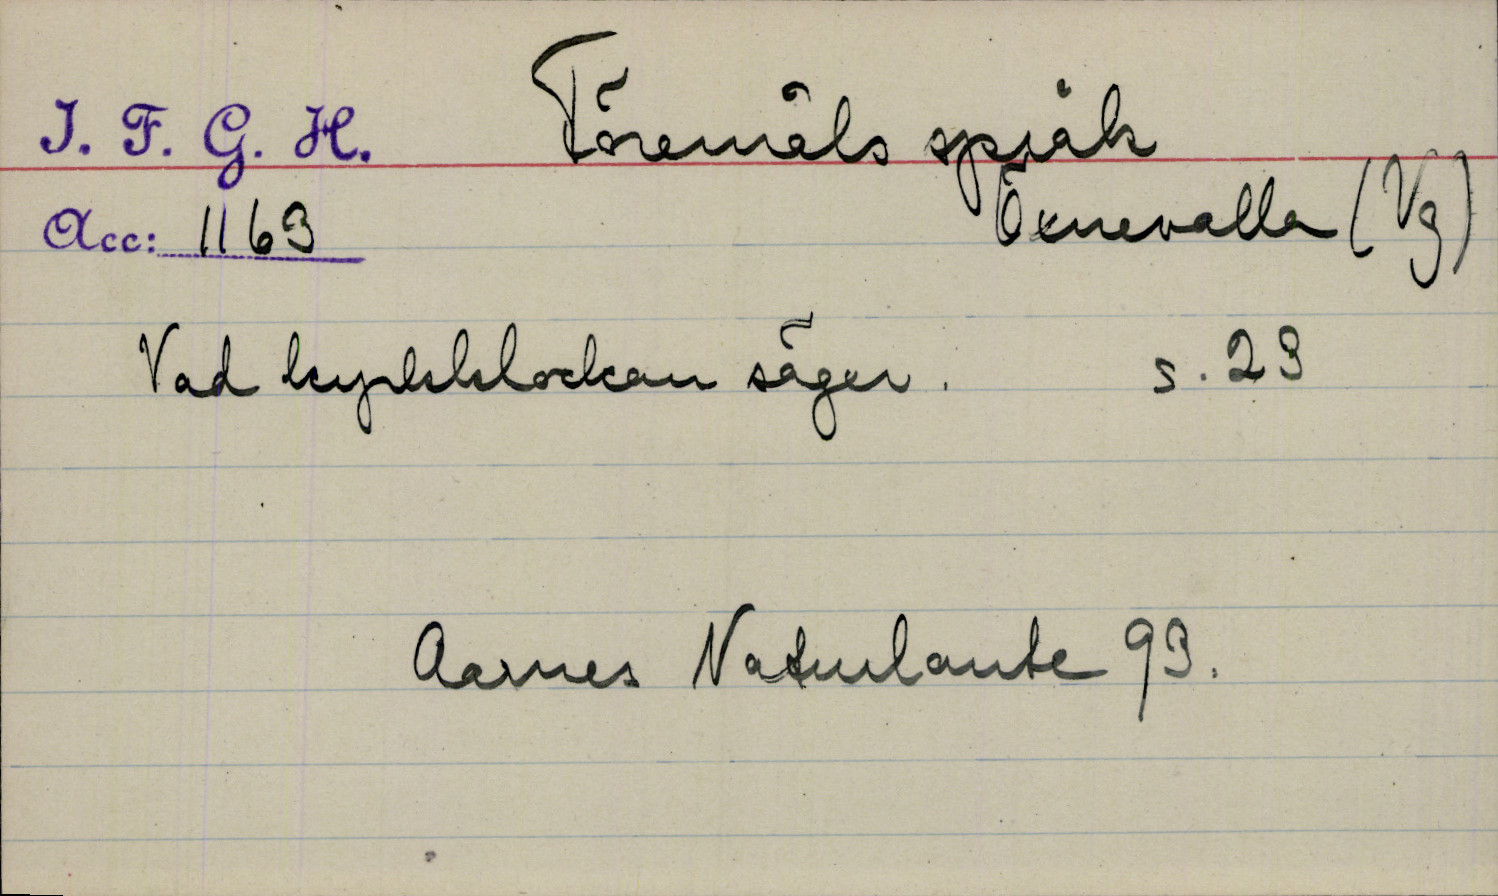 I. F. G. H. Föremåls språk
Acc: 1163 Öxnevalla (Vg)
Vad kyrkklockan säger. s. 23
Aarnes Naturlaute 93.